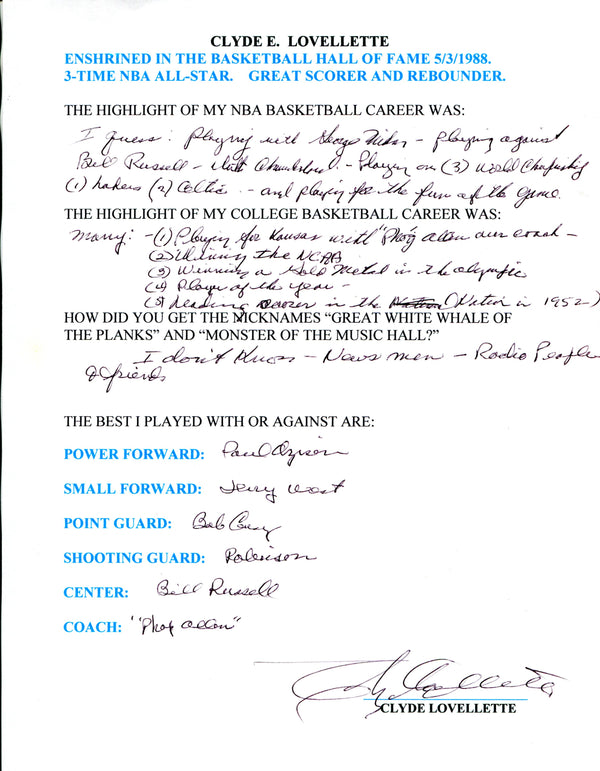 CLYDE E. LOVELLETTE
ENSHRINED IN THE BASKETBALL HALL OF FAME 5/3/1988.
3-TIME NBA ALL-STAR. GREAT SCORER AND REBOUNDER.
THE HIGHLIGHT OF MY NBA BASKETBALL CAREER WAS:
I guess: Playing with George Mikan - playing against
Bill Russell - Wilt Chamberlain - Playing on (3) World Championship
(1) Lakers (2) Celtics - and playing for the fun of the game.
THE HIGHLIGHT OF MY COLLEGE BASKETBALL CAREER WAS:
many: - (1) Playing for Kansas with "Phog Allen our coach -
(2) Winning the NCAA
(3) Winning a Gold Metal in the Olympic
(4) Player of the year -
(5) Leading scorer in the (Nation in 1952)
HOW DID YOU GET THE NICKNAMES "GREAT WHITE WHALE OF
THE PLANKS" AND "MONSTER OF THE MUSIC HALL?"
I don't Know - News men - Radio People
friends
THE BEST I PLAYED WITH OR AGAINST ARE:
POWER FORWARD: Paul
SMALL FORWARD: Jerry West
POINT GUARD: Bob Cousy
SHOOTING GUARD: Robinson
CENTER: Bill Russell
COACH: "Phog Allen"
Clyde Lovellette
CLYDE LOVELLETTE